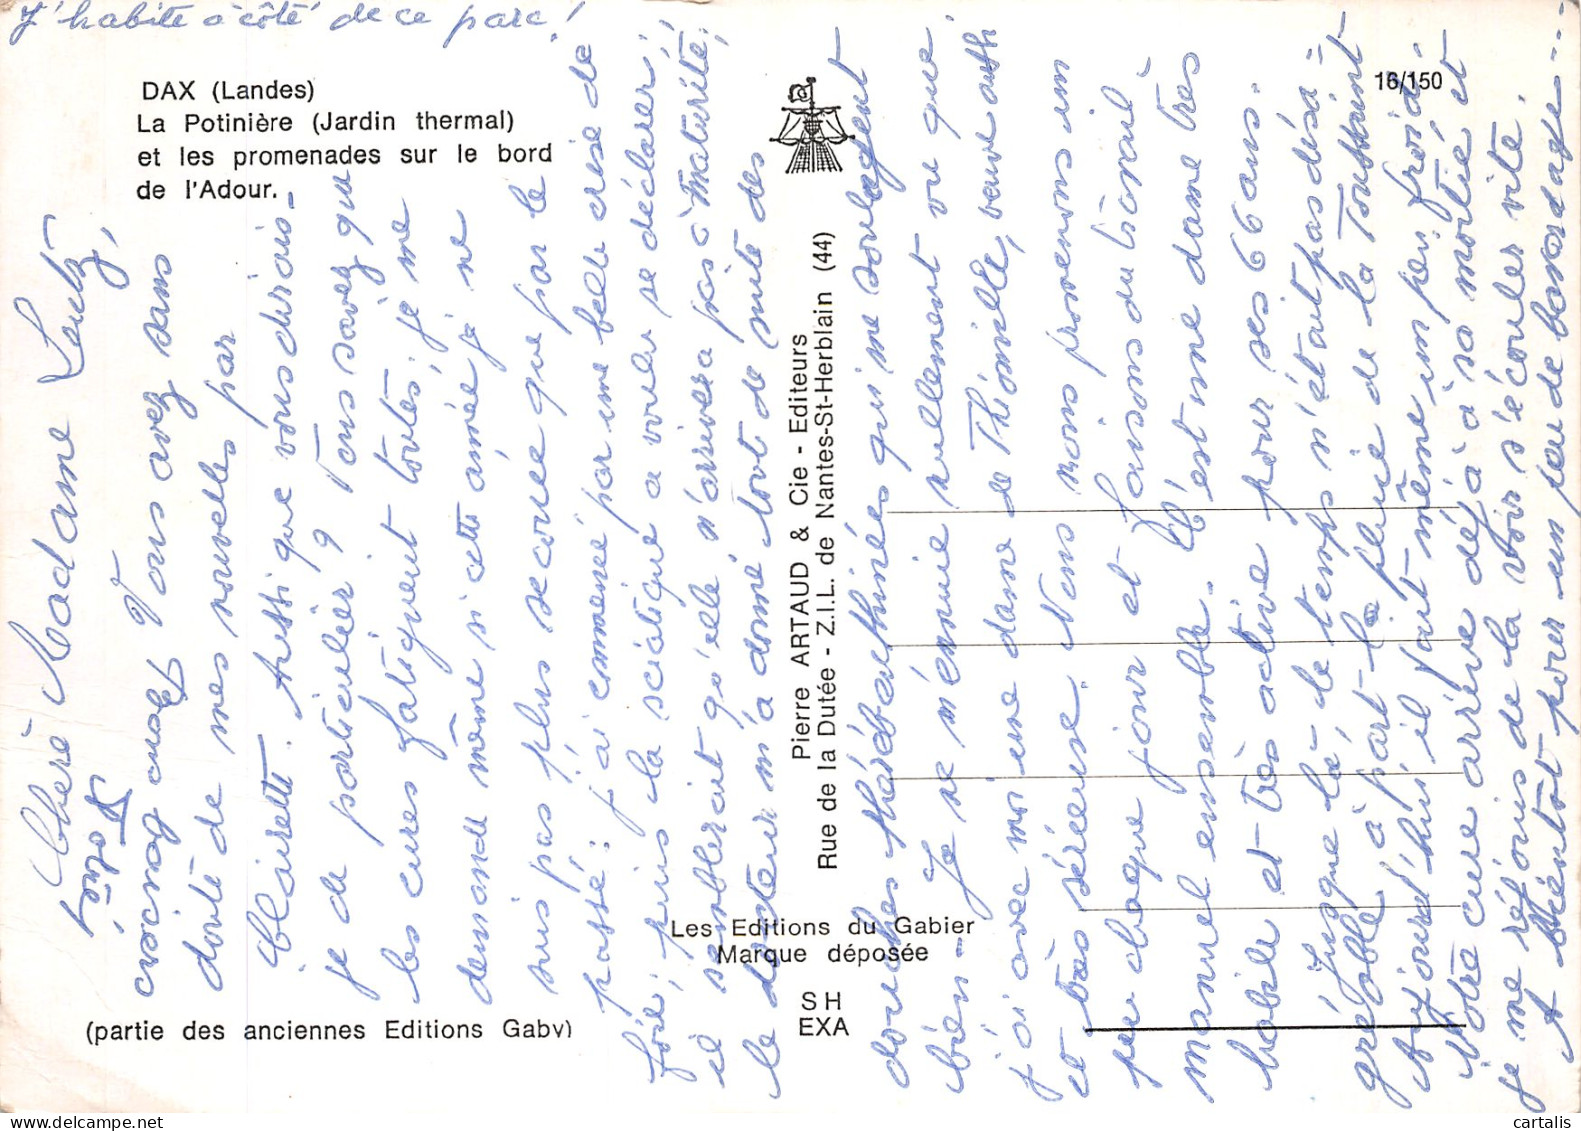 J'habite à côté de ce parc!
DAX (Landes)
La Potinière (Jardin thermal)
et les promenades sur le bord
de l'Adour.
16/150
Pierre ARTAUD & Cie - Editeurs
Rue de la Dutée - Z.I.L. de Nantes-St-Herblain (44)
Les Editions du Gabier
Marque déposée
S H
EXA
(partie des anciennes Editions Gaby)
Chère Madame
Vous avez sans
doute de mes nouvelles par
Clairette. Aussi que vous dirais-
je de particulier? Vous savez que
les cures fatiguent toutes; je me
demande même si cette année je ne
suis pas plus secouée que par le
passé: j'ai commencé par une belle crise de
foie, puis la sciatique a voulu se déclarer;
il semblerait qu'elle n'arrivera pas à maturité;
le docteur m'a donné tout de suite des
douches qui me soulagent
bien -
Je ne m'ennuie nullement vu que
j'ai avec moi une dame de Thionville,
et très sérieuse. Nous nous promenons un
peu chaque jour et faisons du travail
manuel ensemble. C'est une dame très
habile et très active pour ses 66 ans.
Jusque là le temps n'était pas désa-
gréable à part la pluie de la Toussaint
Aujourd'hui il fait même un peu froid.
Votre cure arrive déjà à sa moitié et
je me réjouis de la voir s'écouler vite.
A bientôt pour un peu de bavardage...
cartalis